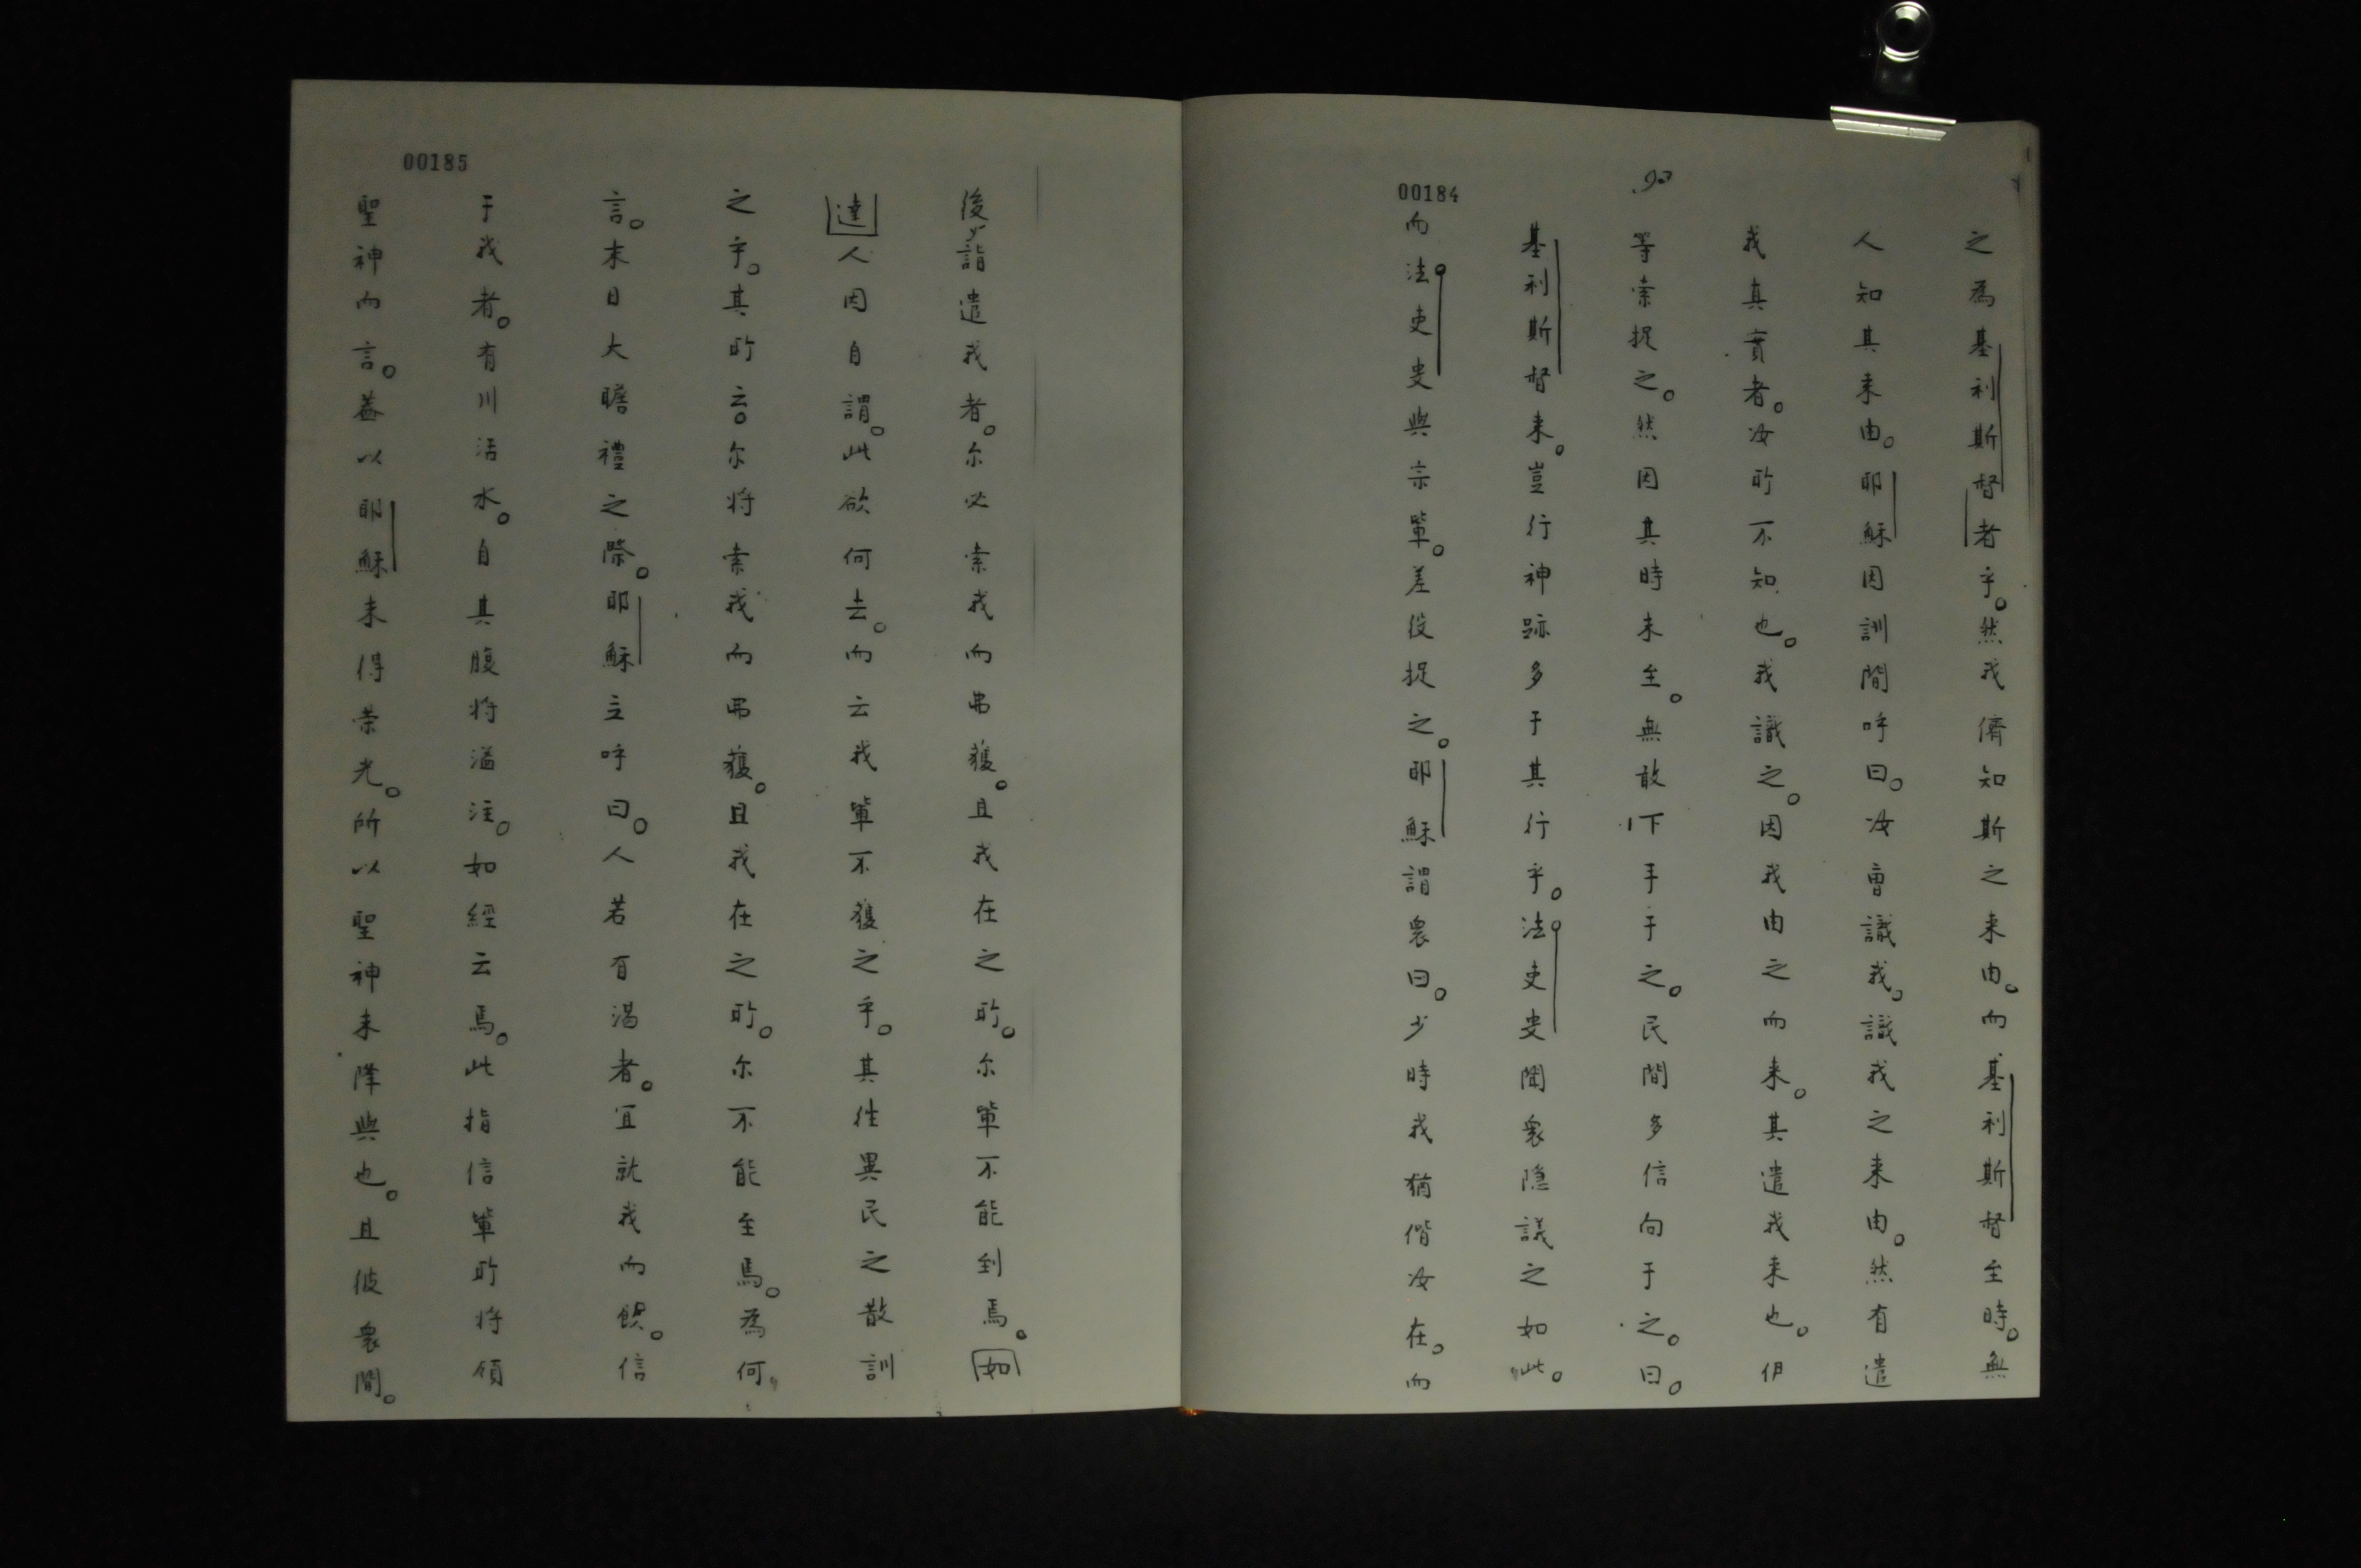 00184
之為基利斯督者乎。然我儕知斯之来由。而基利斯督至時。無
人知其来由。耶穌因訓間呼曰。汝曾識我。識我之来由。然有遣
我真實者。汝所不知也。我識之。因我由之而来。其遣我来也。伊
等索捉之。然因其時未至。無敢下手于之。民間多信向于之。曰。
基利斯督来。豈行神跡多于其行乎。法吏叟聞衆隐議之如此。
而法吏叟與宗軰。差役捉之。耶穌謂衆曰。少時我猶偕汝在。而
00185
後詣遣我者。尔必索我而弗獲。且我在之所。尔軰不能到焉。如
達人因自謂。此欲何去。而云我軰不獲之乎。其往異民之散訓
之乎。其所云。尔将索我而弗獲。且我在之所。尔不能至焉。為何
言。末日大瞻禮之際。耶穌立呼曰。人若有渴者。宜就我而飲。信
于我者。有川活水。自其腹将溢注。如經云焉。此指信軰所将領
聖神而言。葢以耶穌未得荣光。所以聖神未降與也。且彼衆間。